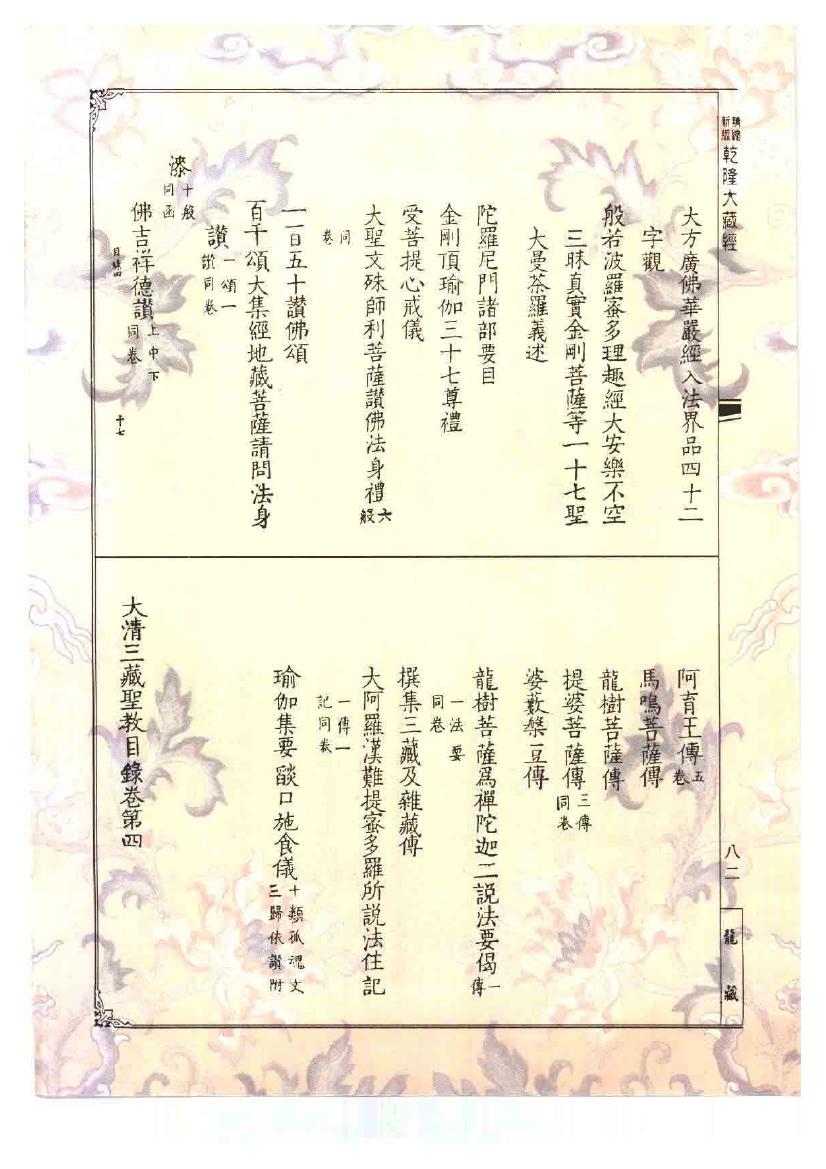 精縮
新版
乾隆大藏經
大方廣佛華嚴經入法界品四十二
字觀
般若波羅蜜多理趣經大安樂不空
三昧真實金剛菩薩等一十七聖
大曼荼羅義述
陀羅尼門諸部要目
金剛頂瑜伽三十七尊禮
受菩提心戒儀
大聖文殊師利菩薩讚佛法身禮六
般
同
卷
一百五十讚佛頌
百千頌大集經地藏菩薩請問法身
讚一頌一
讚同卷
漆十般
同函
佛吉祥德讚上中下
同卷
目錄四
十七
阿育王傳五
卷
馬鳴菩薩傳
龍樹菩薩傳
提婆菩薩傳三傳
同卷
婆藪槃豆傳
龍樹菩薩爲禪陀迦二說法要偈一
傳
一法要
同卷
撰集三藏及雜藏傳
大阿羅漢難提蜜多羅所說法住記
一傳一
記同卷
瑜伽集要燄口施食儀十類孤魂文
三歸依讚附
大清三藏聖教目錄卷第四
八二
龍藏